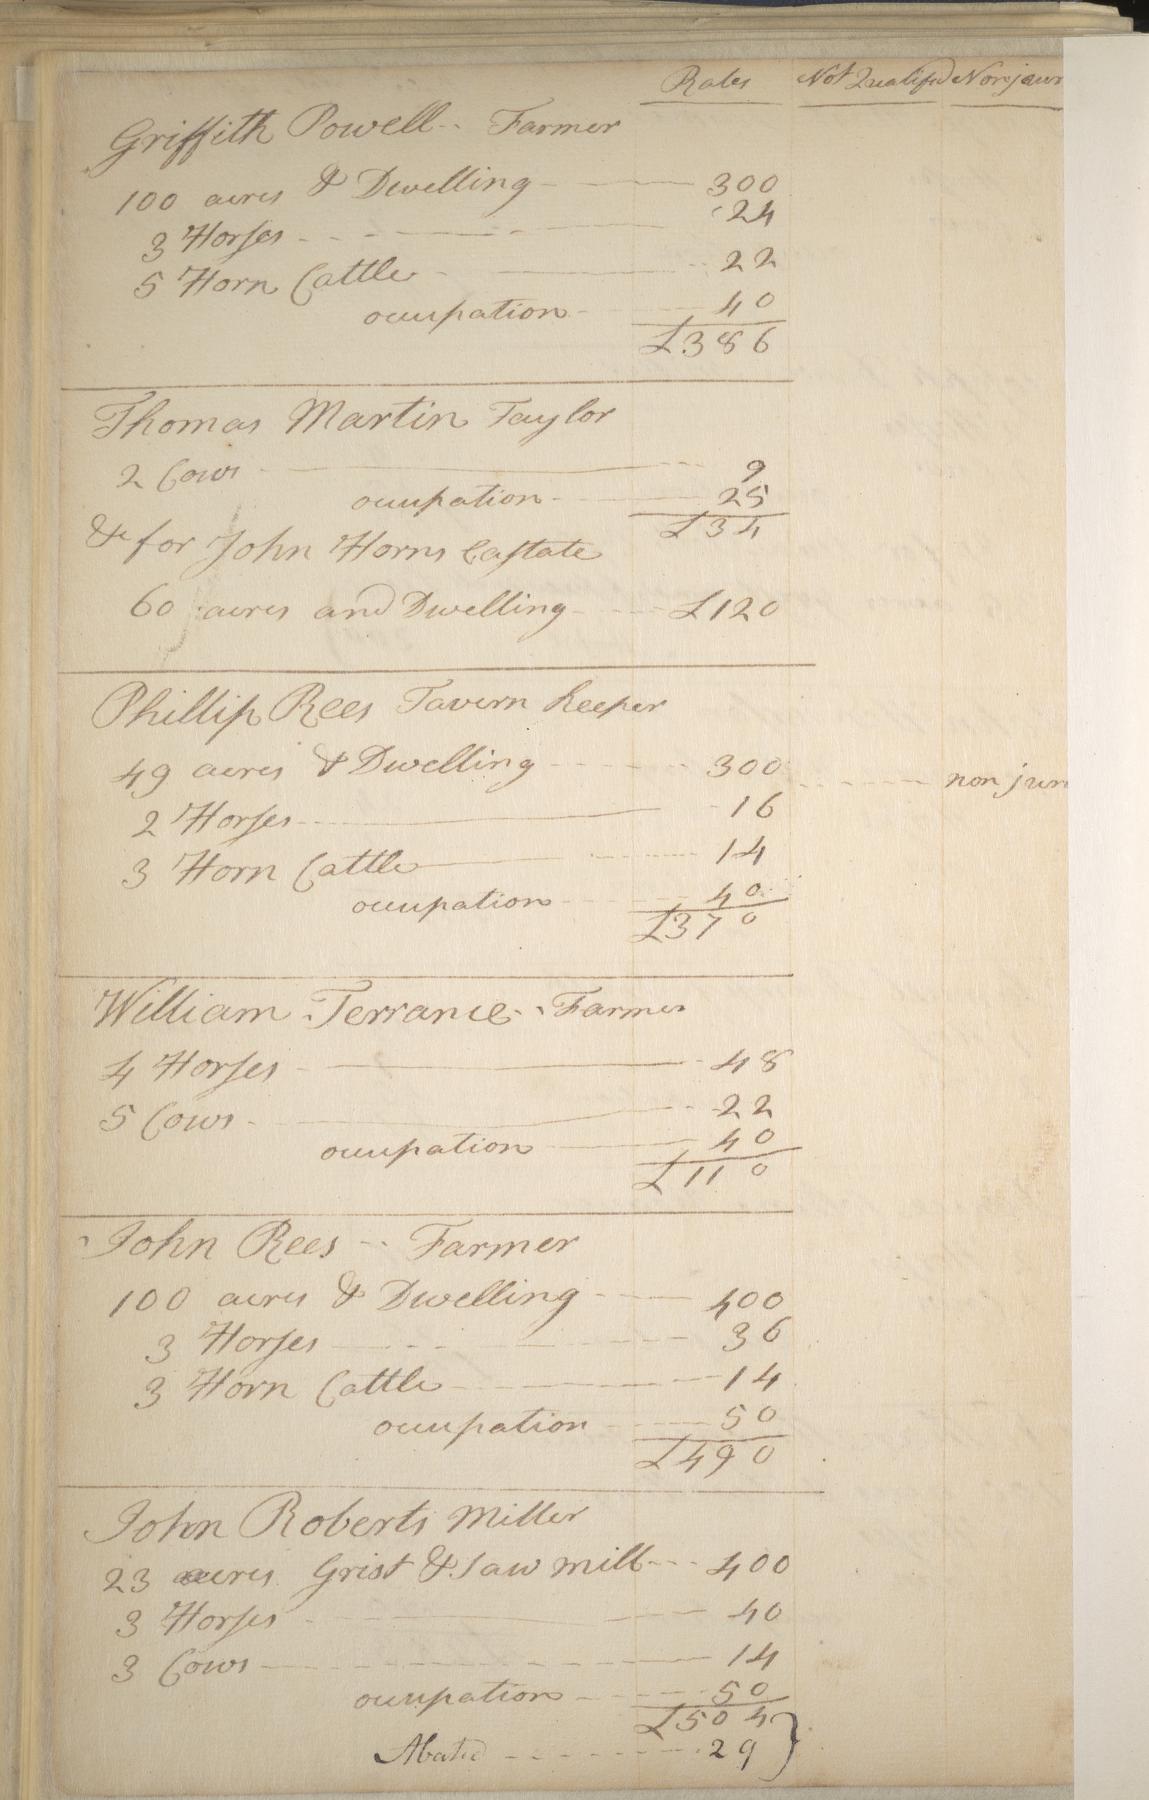 Rates Not Qualified Nonjur
Griffith Powell - Farmer
100 acres & Dwelling - 300
3 Horses - 24
5 Horn Cattle - 22
ocupation - 40
£386
Thomas Martin Taylor
2 Cows 9
ocupation - 25
£34
& for John Horns Eastate
60 acres and Dwelling - £120
Phillip Rees Tavern Keeper
49 acres & Dwelling - 300 - non jur
2 Horses - 16
3 Horn Cattle 14
ocupation 40
£370
William Terrance - Farmer
4 Horses - 48
5 Cows - 22
ocupation 40
£110
John Rees - Farmer
100 acres & Dwelling - 400
3 Horses 36
3 Horn Cattle 14
ocupation 50
£490
John Roberts Miller
23 acres Grist & Saw mill - 400
3 Horses 40
3 Cows - 14
ocupation - 50
£504
Abated - 29